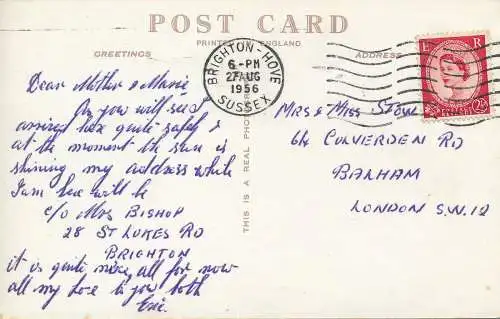 POST CARD
PRINTED IN ENGLAND
GREETINGS
ADDRESS
BRIGHTON - HOVE
6-PM
27 AUG
1956
SUSSEX
E R
2½
Dear Mother & Marie
As you will see I
arrived here quite safely &
at the moment the sun is
shining my address while
I am here will be
c/o Mrs BISHOP
28 ST LUKES RD
BRIGHTON
it is quite nice, all for now
all my love to you both
Eric.
THIS IS A REAL PHOTOGRAPH
MRS & MISS
64 CULVERDEN RD
BALHAM
LONDON S.W.12